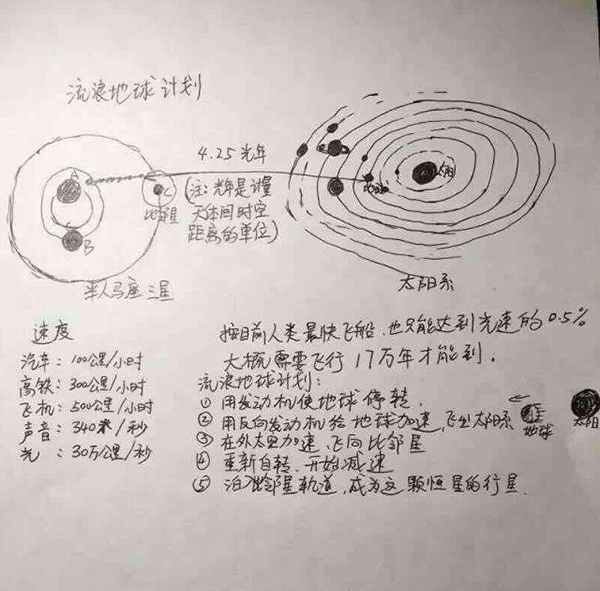 流浪地球计划
4.25光年
A
C
(注:光年是计量
天体间时空
距离的单位)
比邻星
B
地球
太阳
半人马座三星
太阳系
速度
汽车:100公里/小时
高铁:300公里/小时
飞机:500公里/小时
声音:340米/秒
光:30万公里/秒
按目前人类最快飞船,也只能达到光速的0.5%
大概需要飞行17万年才能到.
流浪地球计划:
① 用发动机使地球停转.
② 用反向发动机给地球加速,飞出太阳系
③ 在外太空加速,飞向比邻星
④ 重新自转,开始减速
⑤ 泊入比邻星轨道,成为这颗恒星的行星.
地球
太阳